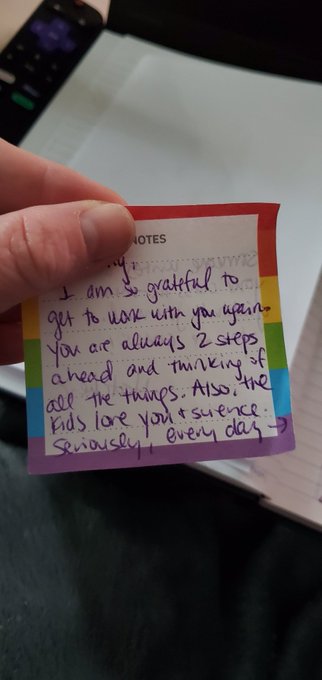 NOTES
I am so grateful to
get to work with you again.
You are always 2 steps
ahead and thinking of
all the things. Also, the
kids love you + science.
Seriously, every day →